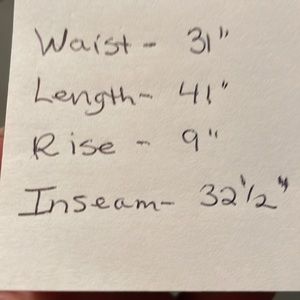 Waist - 31"
Length - 41"
Rise - 9"
Inseam - 32 1/2"